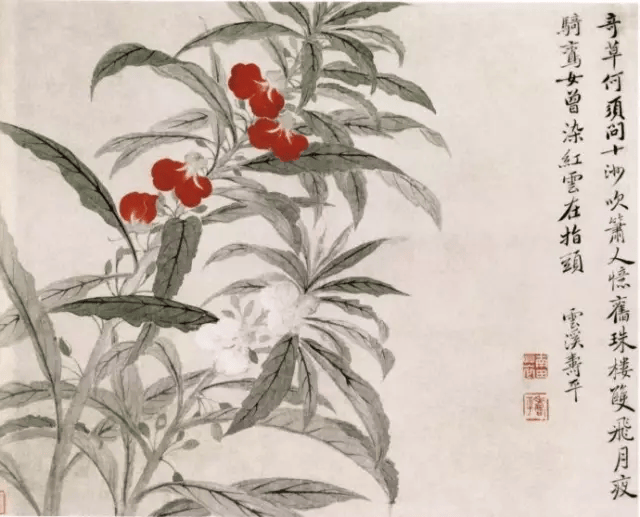 奇草何須問十洲吹簫人憶舊珠樓雙飛月夜
騎鸞女曾染紅雲在指頭
雲溪壽平